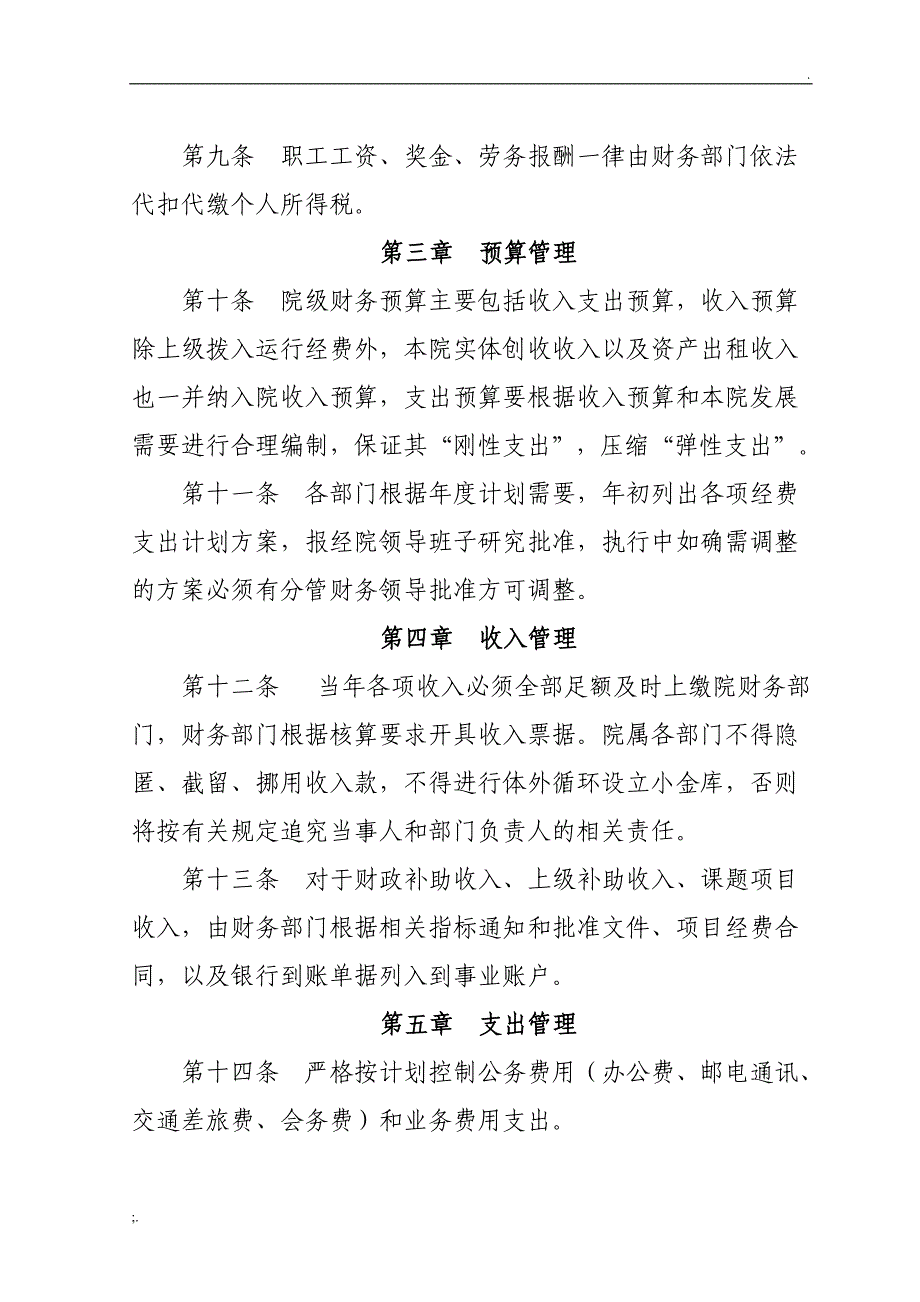 .
第九条　职工工资、奖金、劳务报酬一律由财务部门依法
代扣代缴个人所得税。
第三章　预算管理
第十条　院级财务预算主要包括收入支出预算，收入预算
除上级拨入运行经费外，本院实体创收收入以及资产出租收入
也一并纳入院收入预算，支出预算要根据收入预算和本院发展
需要进行合理编制，保证其“刚性支出”，压缩“弹性支出”。
第十一条　各部门根据年度计划需要，年初列出各项经费
支出计划方案，报经院领导班子研究批准，执行中如确需调整
的方案必须有分管财务领导批准方可调整。
第四章　收入管理
第十二条　 当年各项收入必须全部足额及时上缴院财务部
门，财务部门根据核算要求开具收入票据。院属各部门不得隐
匿、截留、挪用收入款，不得进行体外循环设立小金库，否则
将按有关规定追究当事人和部门负责人的相关责任。
第十三条　对于财政补助收入、上级补助收入、课题项目
收入，由财务部门根据相关指标通知和批准文件、项目经费合
同，以及银行到账单据列入到事业账户。
第五章　支出管理
第十四条　严格按计划控制公务费用（办公费、邮电通讯、
交通差旅费、会务费）和业务费用支出。
;.